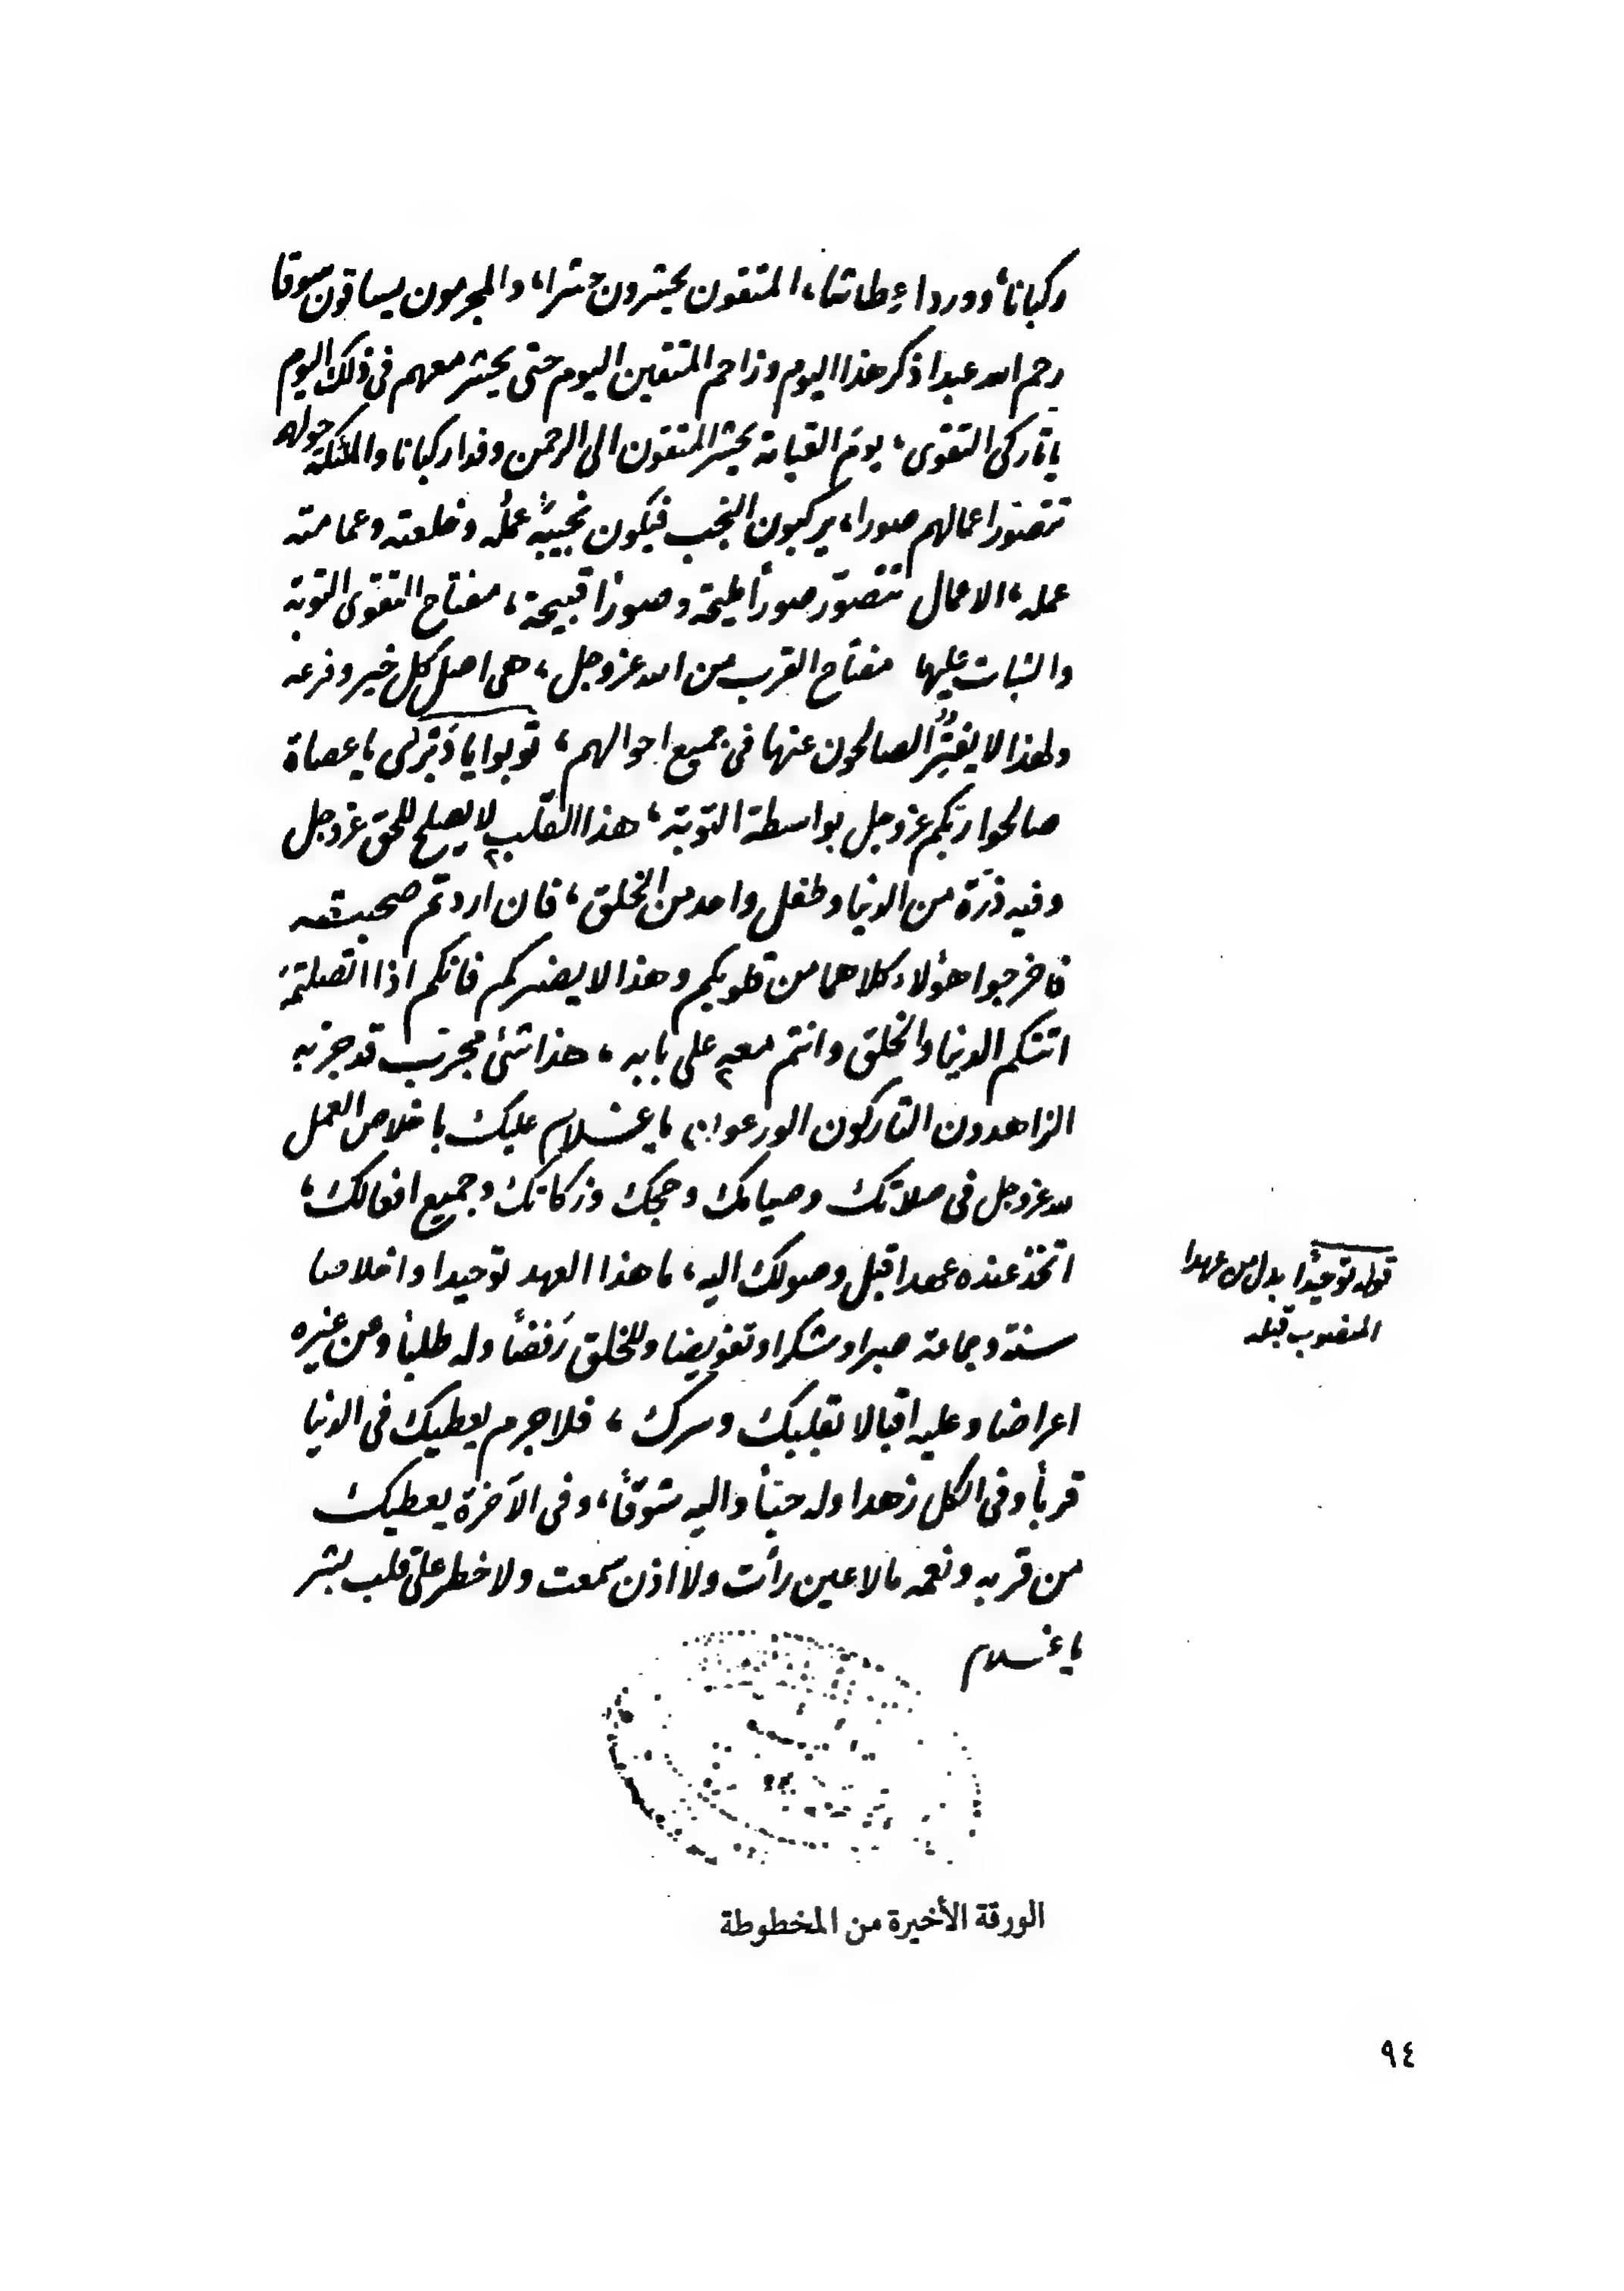 ركبانا، وورداء عطاشا، المتقون يحشرون حشرا، والمجرمون يساقون سوقا
رحم الله عبدا ذكر هذا اليوم وزاحم المتقين اليوم حتى يحشر معهم في ذلك اليوم
يا تاركي التقوى، يوم القيامة يحشر المتقون الى الرحمن وفدا ركبانا والملئكة حولهم
تتصور اعمالهم صورا، يركبون النجب فيكون نجيبه عمله وخلعته وعمامته
عمله، الاعمال تتصور صوراً مليحة وصوراً قبيحة، مفتاح التقوى التوبة
والثبات عليها مفتاح القرب من الله عز وجل، هي اصل كل خير وفرعه
ولهذا لا يفتر الصالحون عنها في جميع احوالهم، توبوا يا دبرى يا عصاة
صالحوا ربكم عز وجل بواسطة التوبة، هذا القلب لا يصلح للحق عز وجل
وفيه ذرة من الدنيا وطفل واحد من الخلق، فان اردتم صحبته
فاخرجوا هؤلاء كلاهما من قلوبكم وهذا لا يضركم فانكم اذا اتصلتم به
اتتكم الدنيا والخلق وانتم معه على بابه، هذا شئ مجرب قد جربه
الزاهدون التاركون الورعون يا غلام عليك باخلاص العمل
لله عز وجل في صلاتك وصيامك وحجك وزكاتك وجميع افعالك،
اتخذ عنده عهدا قبل وصولك اليه، ما هذا العهد توحيدا واخلاصا
سنة وجماعة صبرا وشكرا وتفويضا وللخلق رفضاً وله طلباً وعن غيره
اعراضا وعليه اقبالا بقلبك وسرك، فلا جرم يعطيك في الدنيا
قرباً وفي الكل زهدا وله حبّاً واليه شوقاً، وفي الآخرة يعطيك
من قربه ونعمه ما لا عين رأت ولا اذن سمعت ولا خطر على قلب بشر
يا غلام
قوله توحيداً بدل من عهدا
المنصوب قبله
الورقة الأخيرة من المخطوطة
٩٤